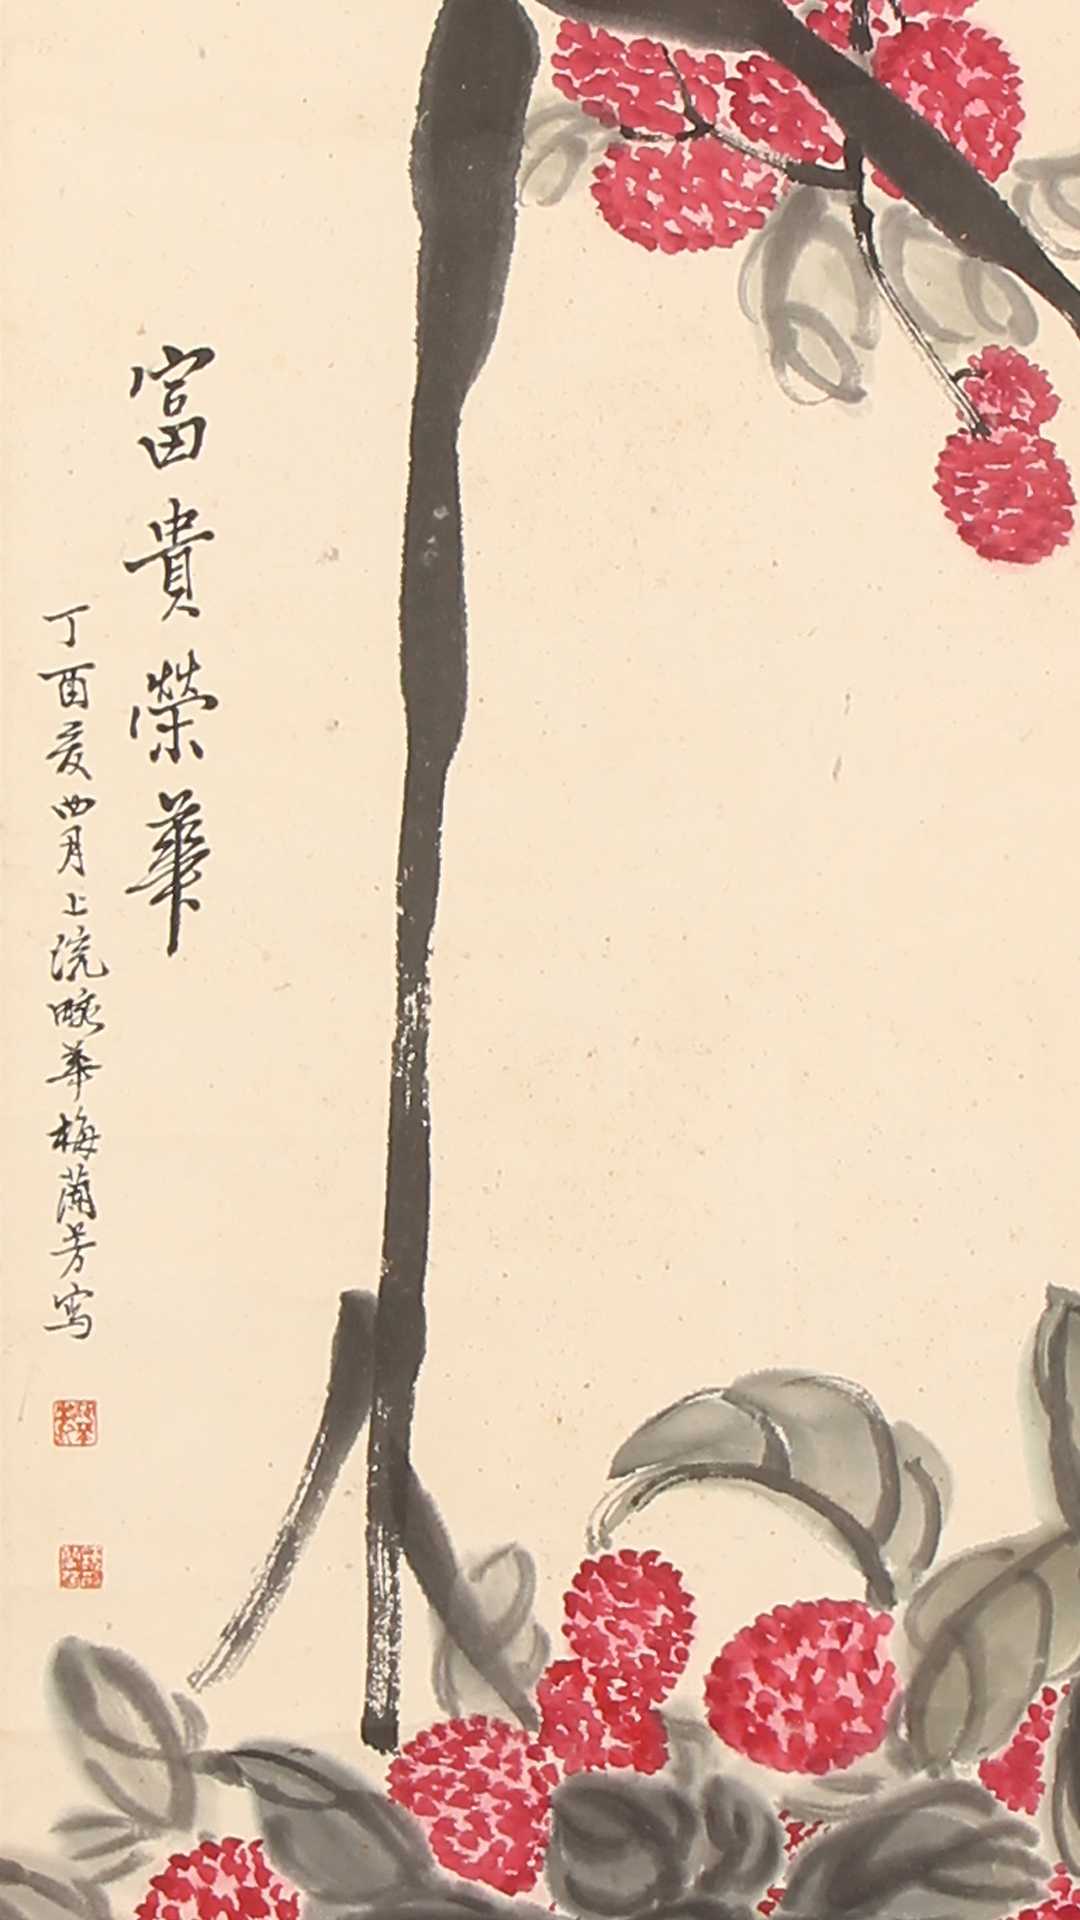 富貴榮華
丁酉夏四月上浣畹華梅蘭芳寫